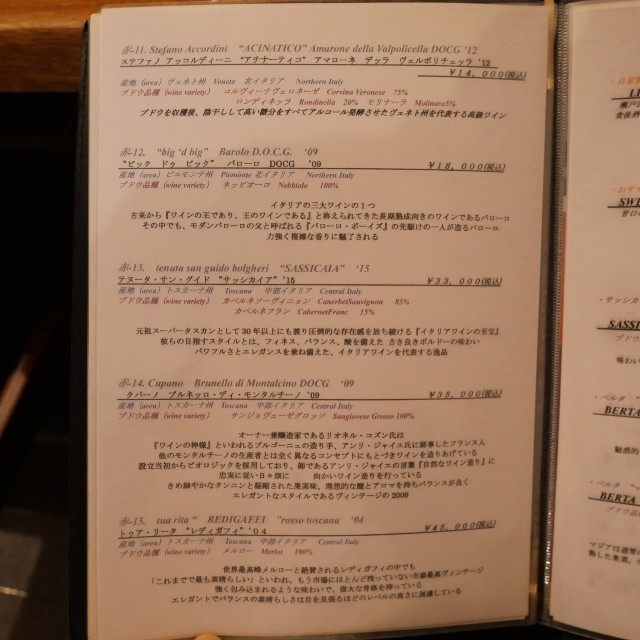 赤-11. Stefano Accordini “ACINATICO” Amarone della Valpolicella DOCG ’12
ステファノ アッコルディーニ “アチナーティコ” アマローネ デッラ ヴェルポリチェッラ ’12 ￥14,000(税込)
産地 (area) ヴェネト州 Veneto 北イタリア Northern Italy
ブドウ品種 (wine variety) コルヴィーナヴェロネーゼ Corvina Veronese 75%
ロンディネッラ Rondinella 20% モリナーラ Molinara5%
ブドウを収穫後、陰干しして高い糖分をすべてアルコール発酵させたヴェネト州を代表する高級ワイン
赤-12. “big ‘d big” Barolo D.O.C.G. ‘09
“ビック ドゥ ビック” バローロ DOCG ’09 ￥18,000(税込)
産地 (area) ピエモンテ州 Piemonte 北イタリア Northern Italy
ブドウ品種 (wine variety) ネッビオーロ Nebbiolo 100%
イタリアの三大ワインの１つ
古来から『ワインの王であり、王のワインである』と称えられてきた長期熟成向きのワインであるバローロ
その中でも、モダンバローロの父と呼ばれる『バローロ・ボーイズ』の先駆けの一人が造るバローロ
力強く複雑な香りに魅了される
赤-13. tenuta san guido bolgheri “SASSICAIA” ‘15
テヌータ・サン・グイド “サッシカイア” ’15 ￥33,000(税込)
産地 (area) トスカーナ州 Toscana 中部イタリア Central Italy
ブドウ品種 (wine variety) カベルネソーヴィニョン CanerbetSauvignon 85%
カベルネフラン CabernetFranc 15%
元祖スーパータスカンとして 30 年以上にも渡り圧倒的な存在感を放ち続ける『イタリアワインの至宝』
彼らの目指すスタイルとは、フィネス、バランス、酸を備えた 古き良きボルドーの味わい
パワフルさとエレガンスを兼ね備えた、イタリアワインを代表する逸品
赤-14. Cupano Brunello di Montalcino DOCG ‘09
クパーノ ブルネッロ・ディ・モンタルチーノ ’09 ￥35,000(税込)
産地 (area) トスカーナ州 Toscana 中部イタリア Central Italy
ブドウ品種 (wine variety) サンジョヴェーゼグロッソ Sangiovese Grosso 100%
オーナー兼醸造家であるリオネル・コズン氏は
『ワインの神様』といわれるブルゴーニュの造り手、アンリ・ジャイエ氏に師事したフランス人
他のモンタルチーノの生産者とは全く異なるコンセプトにもとづきワインを造りあげている
設立当初からビオロジックを採用しており、師であるアンリ・ジャイエの言葉『自然なワイン造り』に
忠実に従い日々畑に 向かいワイン造りを行っている
きめ細やかなタンニンと凝縮された果実味、理想的な酸とアロマを持ちバランスが良く
エレガントなスタイルであるヴィンテージの 2009
赤-15. tua rita “ REDIGAFFI ”rosso toscana ‘04
トゥア・リータ “レディガフィ” ’04 ￥45,000(税込)
産地 (area) トスカーナ州 Toscana 中部イタリア Central Italy
ブドウ品種 (wine variety) メルロー Merlot 100%
世界最高峰メルローと絶賛されるレディガフィの中でも
「これまでで最も素晴らしい」といわれ、もう市場にほとんど残っていない市場最高ヴィンテージ
強く包み込まれるような味わいで、偉大な骨格を持っている
エレガントでバランスの素晴らしさは目を見張るほどのレベルの高さに到達している
SASSI
BERTA
BERTA